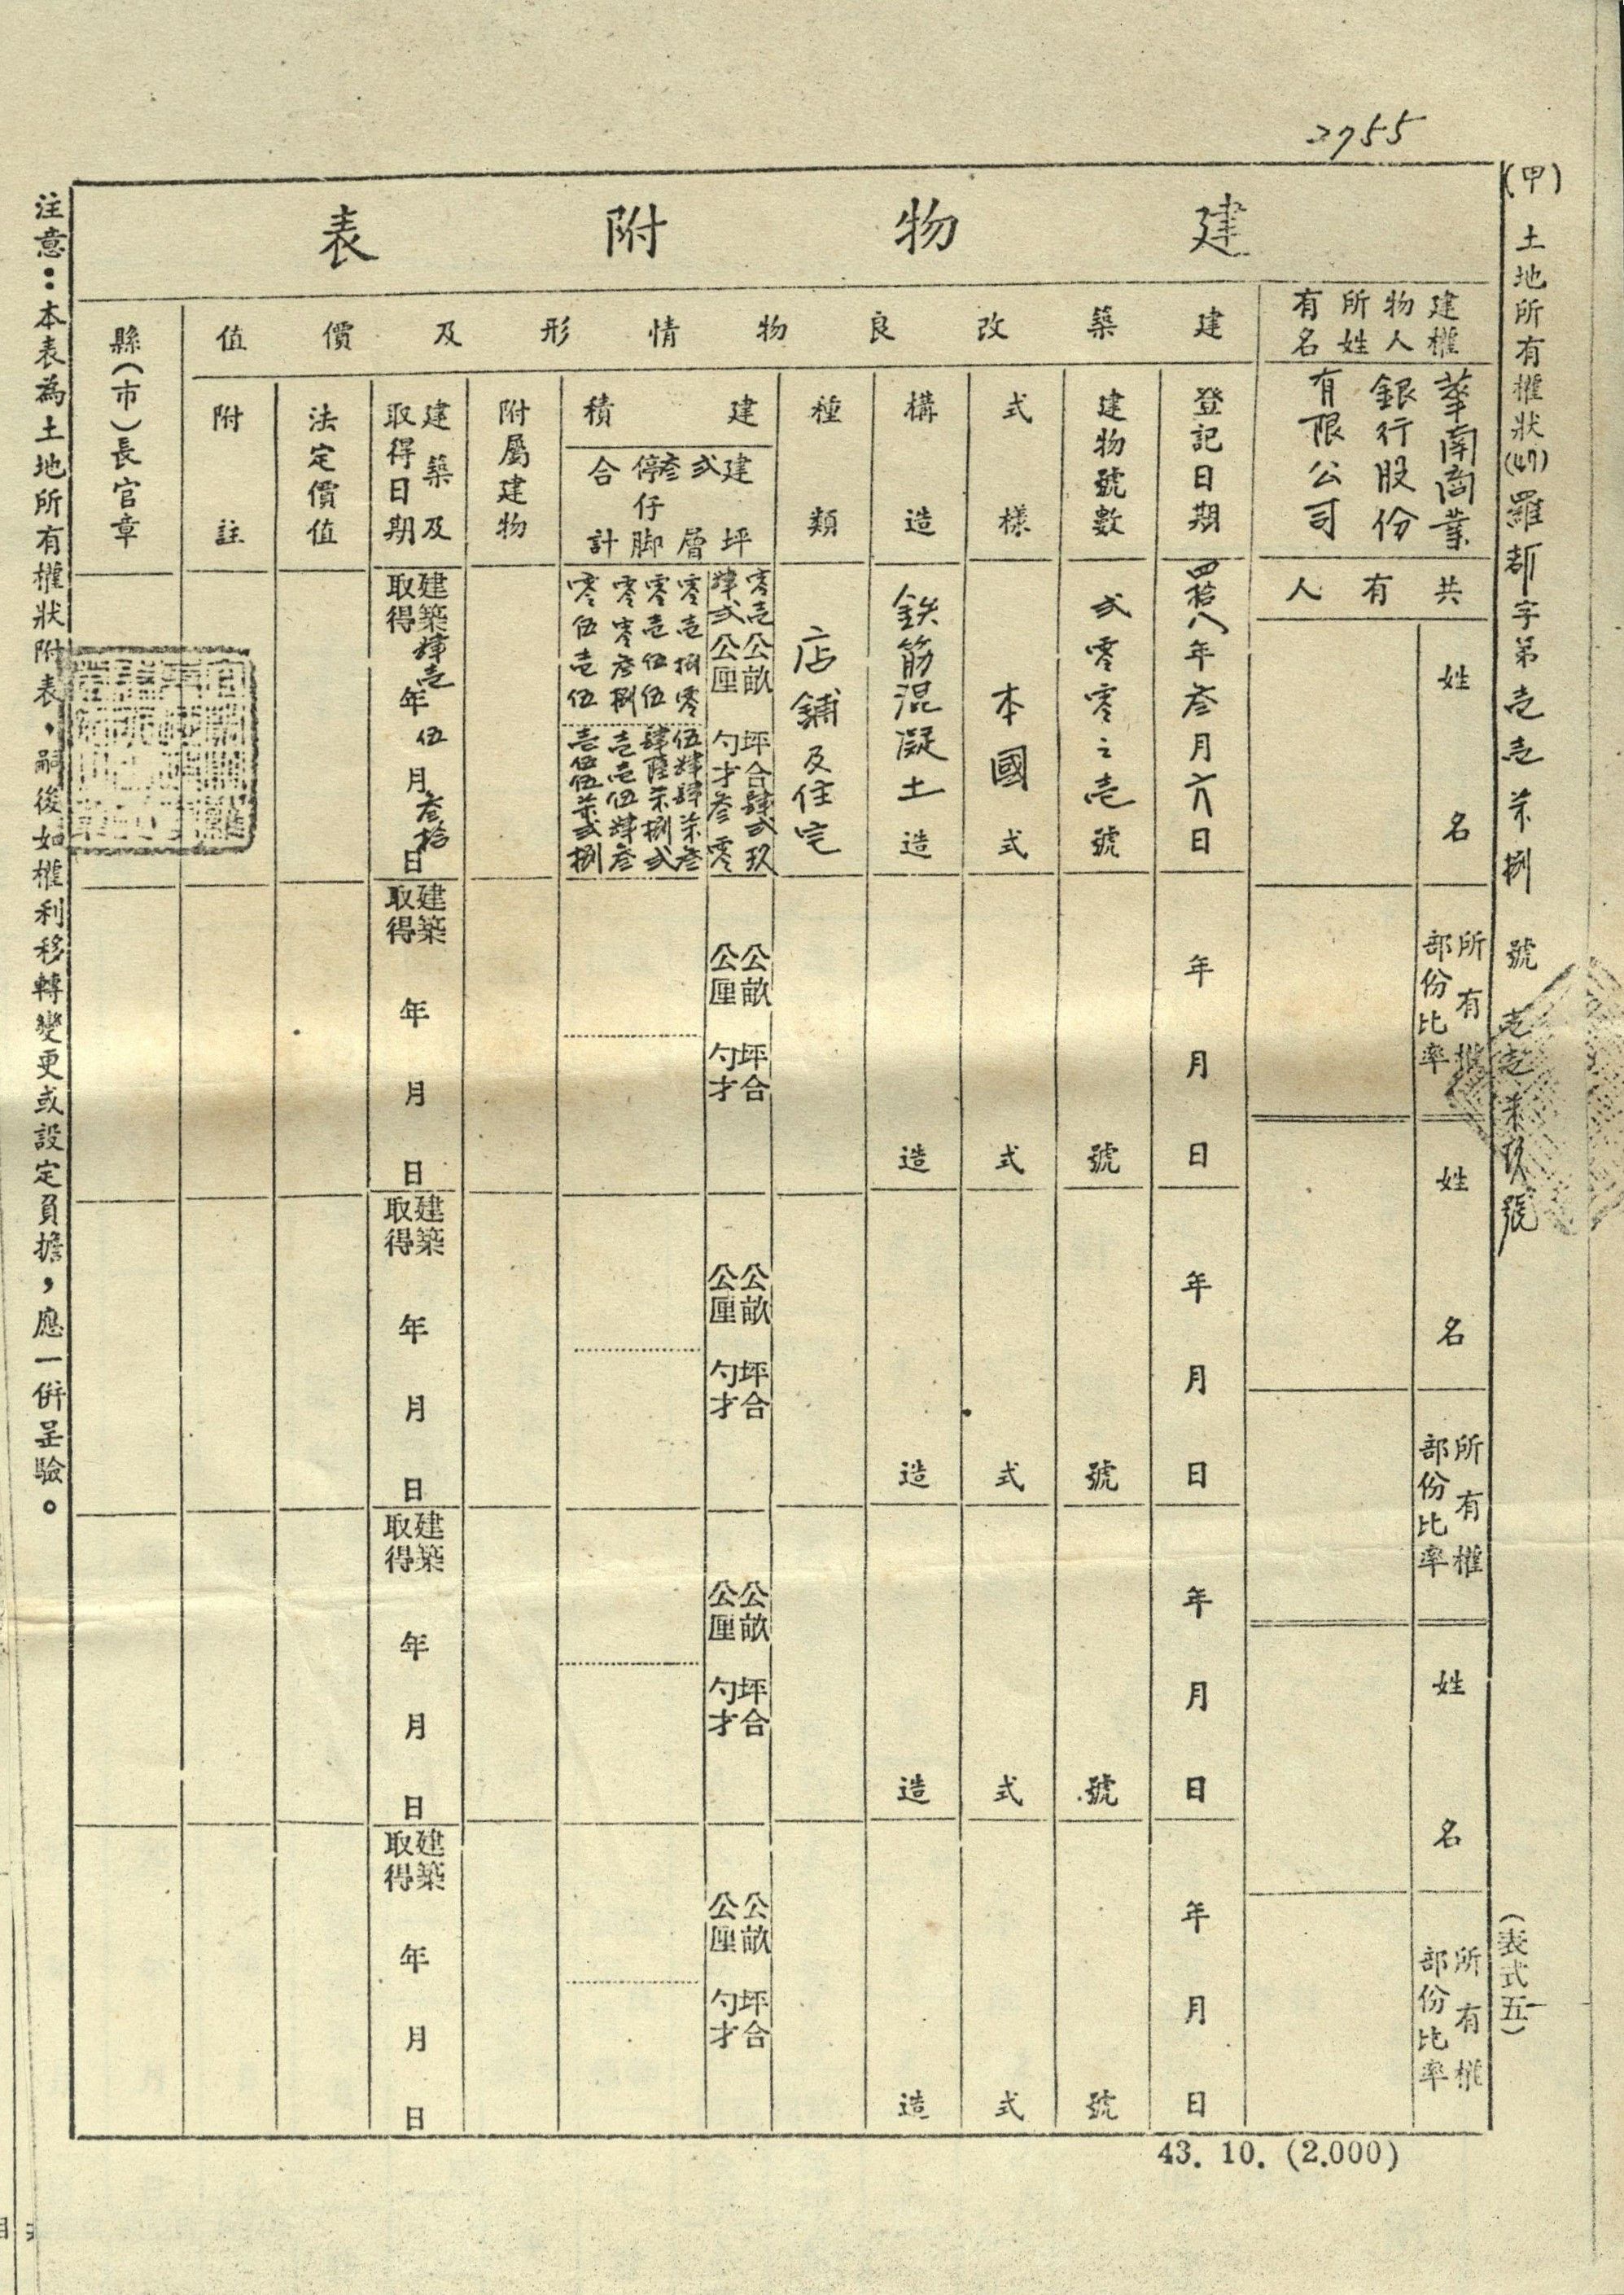 2755
(甲) 土地所有權狀(47)羅都字第壱壱柒捌號 壱壱柒玖號
(表式五)
建物附表
建物所有權人姓名
華南商業
銀行股份
有限公司
共有人
姓名
所有權部份比率
姓名
所有權部份比率
姓名
所有權部份比率
建築改良物情形及價值
登記日期
四拾八年叁月六日
年月日
年月日
年月日
年月日
建物號數
弍零零之壱號
號
號
號
號
式樣
本國式
式
式
式
式
構造
鉄筋混凝土造
造
造
造
造
種類
店鋪及住宅
建積
建坪
弍層
叁
停仔脚
合計
零壱公畝 坪合肆弍玖
肆弍公厘 勺才叁零
零壱捌零 伍肆肆柒叁
零壱伍伍 肆陸柒捌弍
零零叁捌 壱壱伍肆叁
零伍壱伍 壱伍伍柒弍捌
公畝公厘
坪合勺才
公畝公厘
坪合勺才
公畝公厘
坪合勺才
公畝公厘
坪合勺才
附屬建物
建築及取得日期
建築取得 肆壱年伍月叁拾日
建築取得 年月日
建築取得 年月日
建築取得 年月日
建築取得 年月日
法定價值
附註
縣(市)長官章
注意：本表為土地所有權狀附表，嗣後如權利移轉變更或設定負擔，應一併呈驗。
43. 10. (2.000)